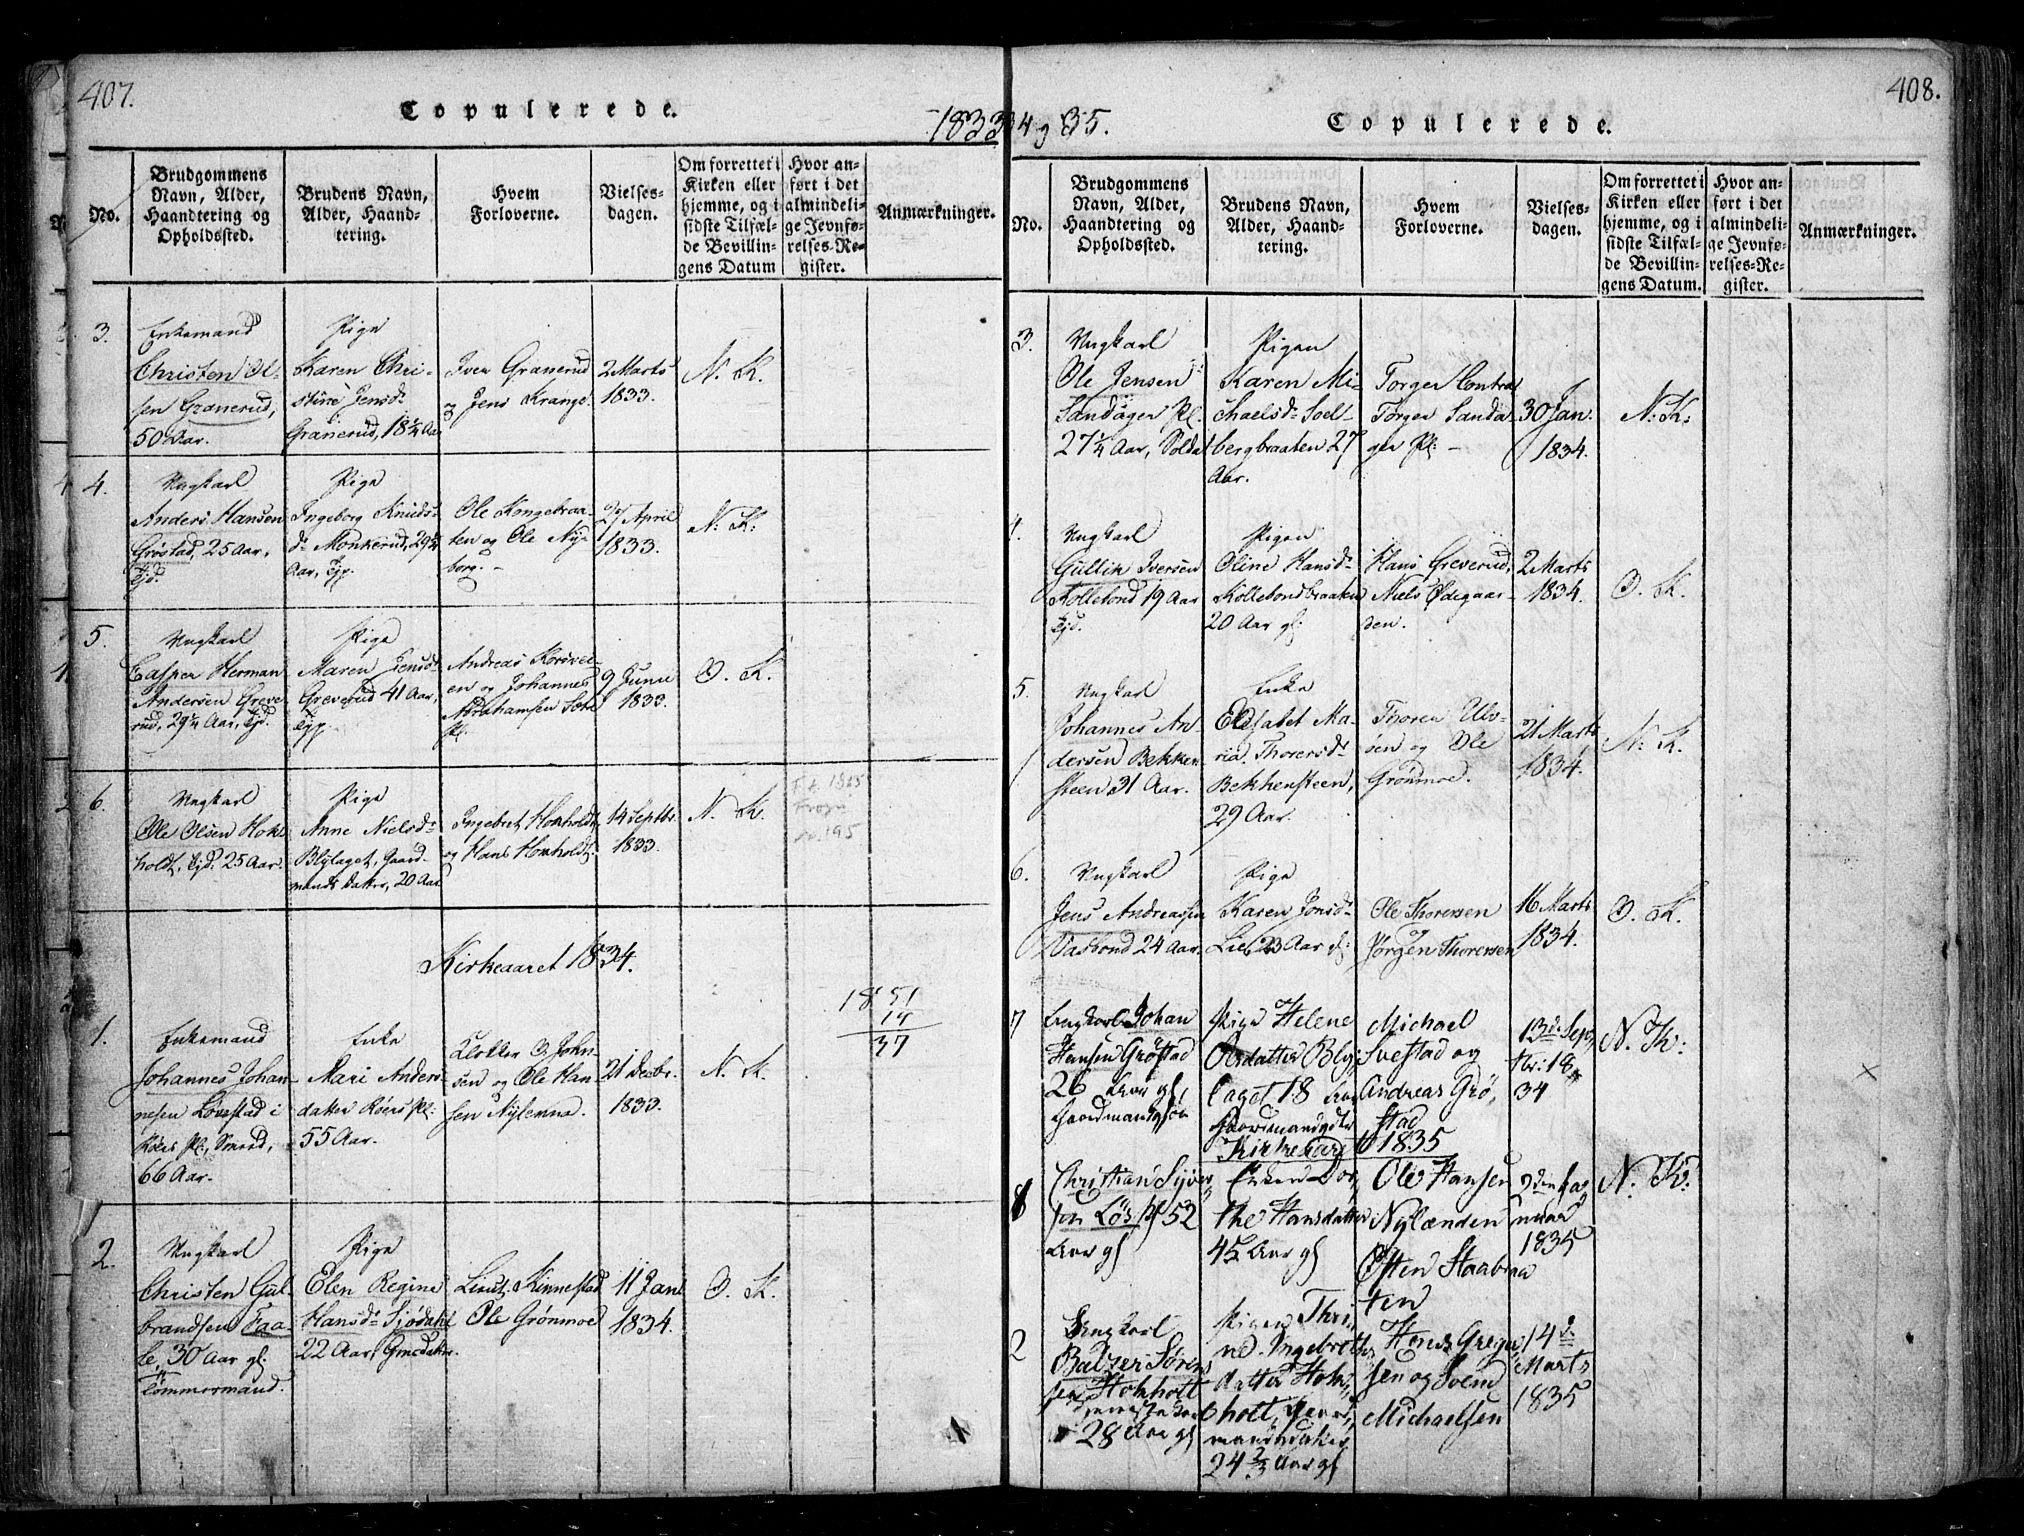 407.
Copulerede.
1833
No.
Brudgommens Navn, Alder, Haandtering og Opholdssted.
Brudens Navn, Alder, Haandtering.
Hvem Forloverne.
Vielsesdagen.
Om forrettet i Kirken eller hjemme, og i sidste Tilfælde Bevillingens Datum
Hvor anført i det almindelige Jevnførelses-Register.
Anmærkninger.
3.
Enkemand
Christen Ol-
sen Granerud,
50 Aar.
Pige
Karen Chri-
stine Jensd.
Granerud, 18¼ Aar
Iver Granerud
og Jens Krange.
2 Marts
1833.
N. K.
4.
Ungkarl
Anders Hansen
Grøstad, 25 Aar,
Pige
Ingeborg Knuds-
d. Monkerud, 29¼
Aar,
Ole Kongebraa-
ten og Ole Ny-
borg. -
27 April
1833.
N. K.
5.
Ungkarl
Casper Herman
Andersen Greve-
rud, 29¼ Aar,
Pige
Maren Jensd.
Greverud 41 Aar,
Andreas Kordvei-
en og Johannes
Abrahamsen
Pl.
9 Junii
1833.
O. K.
6.
Ungkarl
Ole Olsen Hok-
holdt, 25 Aar.
Pige
Anne Nielsd.
Blylaget, Gaard-
mands datter, 20 Aar
Ingebret Hokholdt
og Hans Hokholdt.
14 Septbr.
1833.
N. K.
F.t. 1865
Frogn
nr. 195
Kirkeaaret 1834.
1851
14
37
1.
Enkemand
Johannes Johan-
nesen Løvestad i
Røers Pl., Smed,
66 Aar.
Enke
Mari Anders-
datter Røers Pl:
55 Aar.
Klokker O. John-
sen og Ole Han-
sen Nylænna.
21 Decbr.
1833.
N. K.
2.
Ungkarl
Christen Gul-
brandsen Faa-
le, 30 Aar gl.
Tømmermand.
Pige
Elen Regine
Hansd. Sjødahl
22 Aar, Gmdatter.
Lieut. Kinnestad
Ole Grønmoe
11 Jan.
1834.
O. K.
408.
34 og 35.
Copulerede.
No.
Brudgommens Navn, Alder, Haandtering og Opholdssted.
Brudens Navn, Alder, Haandtering.
Hvem Forloverne.
Vielsesdagen.
Om forrettet i Kirken eller hjemme, og i sidste Tilfælde Bevillingens Datum.
Hvor anført i det almindelige Jevnførelses-Register.
Anmærkninger.
3.
Ungkarl
Ole Jensen
Sandager Pl.
27¼ Aar, Soldat
Pigen
Karen Mi-
chaelsd. Soel-
bergbraaten 27
Aar.
Torger
Torger Sanda-
ger Pl. -
30 Jan.
1834.
N. K:
4.
Ungkarl
Gullik Iversen
Kollebond 19 Aar
Pigen
Oline Hansd.
Kollebondbraaten
20 Aar gl.
Hans Greverud,
Niels Ødegaar-
den.
2 Marts
1834.
O. K.
5.
Ungkarl
Johannes An-
dersen Bekken-
steen 31 Aar.
Enke
Elisabet Ma-
ria Thorersd.
Bekkensteen,
29 Aar.
Thoren Ulv-
sen og Ole
Grønmoe.
21 Marts
1834.
N. K.
6.
Ungkarl
Jens Andreassen
24 Aar.
Pige
Karen Jonsd.
Lie, 23 Aar gl:
Ole Thoresen
Jørgen Thoresen
16 Marts
1834.
O. K.
7
Ungkarl Johan
Hansen Grøstad
26 Aar gl
Gaardmandssøn
Pige Helene
Olsdatter Bly-
laget 18 Aar
Gaardmandsdtr
Michael
Svestad og
Andreas Grø-
stad
13de Sep-
tbr: 18
34
N. K:
Kirkeaaret 1835
8
Christian Syver-
sen Løs Pl 52
Aar gl
Enken Dor-
the Hansdatter
45 Aar gl
Ole Hansen
Nylænden
Østen Staabraa
ten
2den Ja-
nuar
1835
N. K:
2
Ungkarl
Balzer Søren-
sen Hokholt
28 Aar gl
Pigen Thri-
ne Ingebreths-
datter Hok-
holt, Gaard-
mandsdatter
24⅔ Aar gl
Hans Greger-
sen og Svend
Michaelsen
14de
Marts
1835